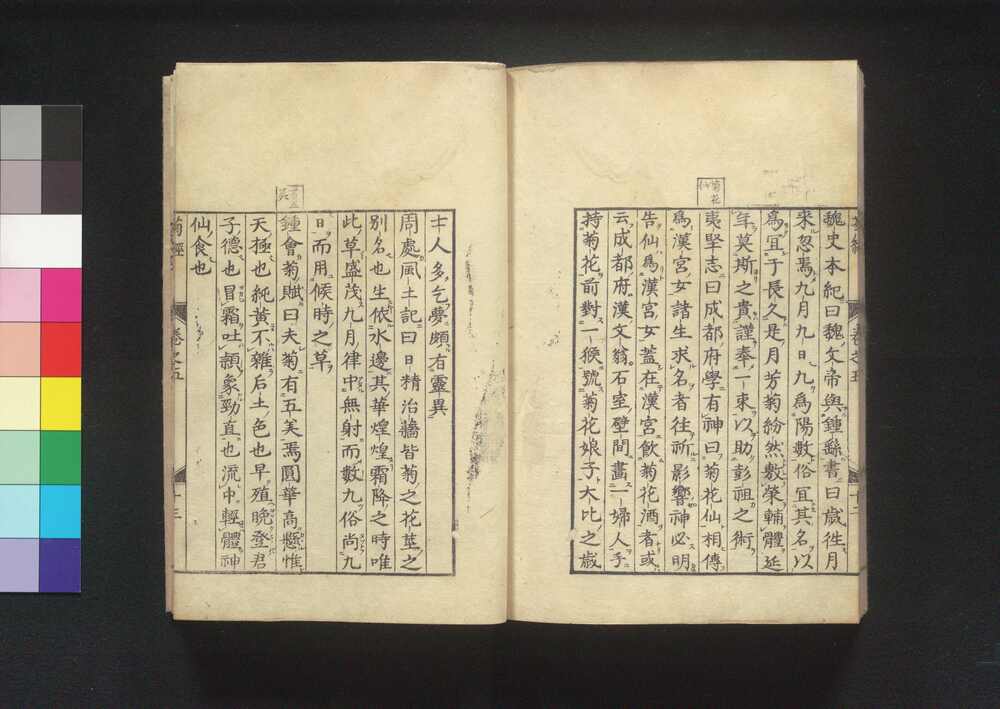 菊花
仙
魏史本紀曰魏文帝與鍾繇書曰歳徃月
来忽焉九月九日九爲陽數俗冝其名以
爲冝于長久是月芳菊紛然敷榮輔體延
年莫斯之貴謹奉一束以助彭祖之術
夷堅志曰成都府學有神曰菊花仙相傳
爲漢宮女諸生求名者往祈影響神必明
告仙爲漢宮女蓋在漢宮飲菊花酒者或
云成都府漢文翁石室壁間畫一婦人手
持菊花前對一猴號菊花娘子大比之歳
士人多乞夢頗有靈異
周處風土記曰日精治牆皆菊之花莖之
別名也生依水邊其華煌煌霜降之時唯
此草盛茂九月律中無射而數九俗尚九
日而用候時之草
鍾會菊賦曰夫菊有五美焉圓華高懸惟
天極也純黃不雜后土色也早殖晩登君
子德也冒霜吐頴象勁直也流中輕體神
仙食也
卷之五
十三